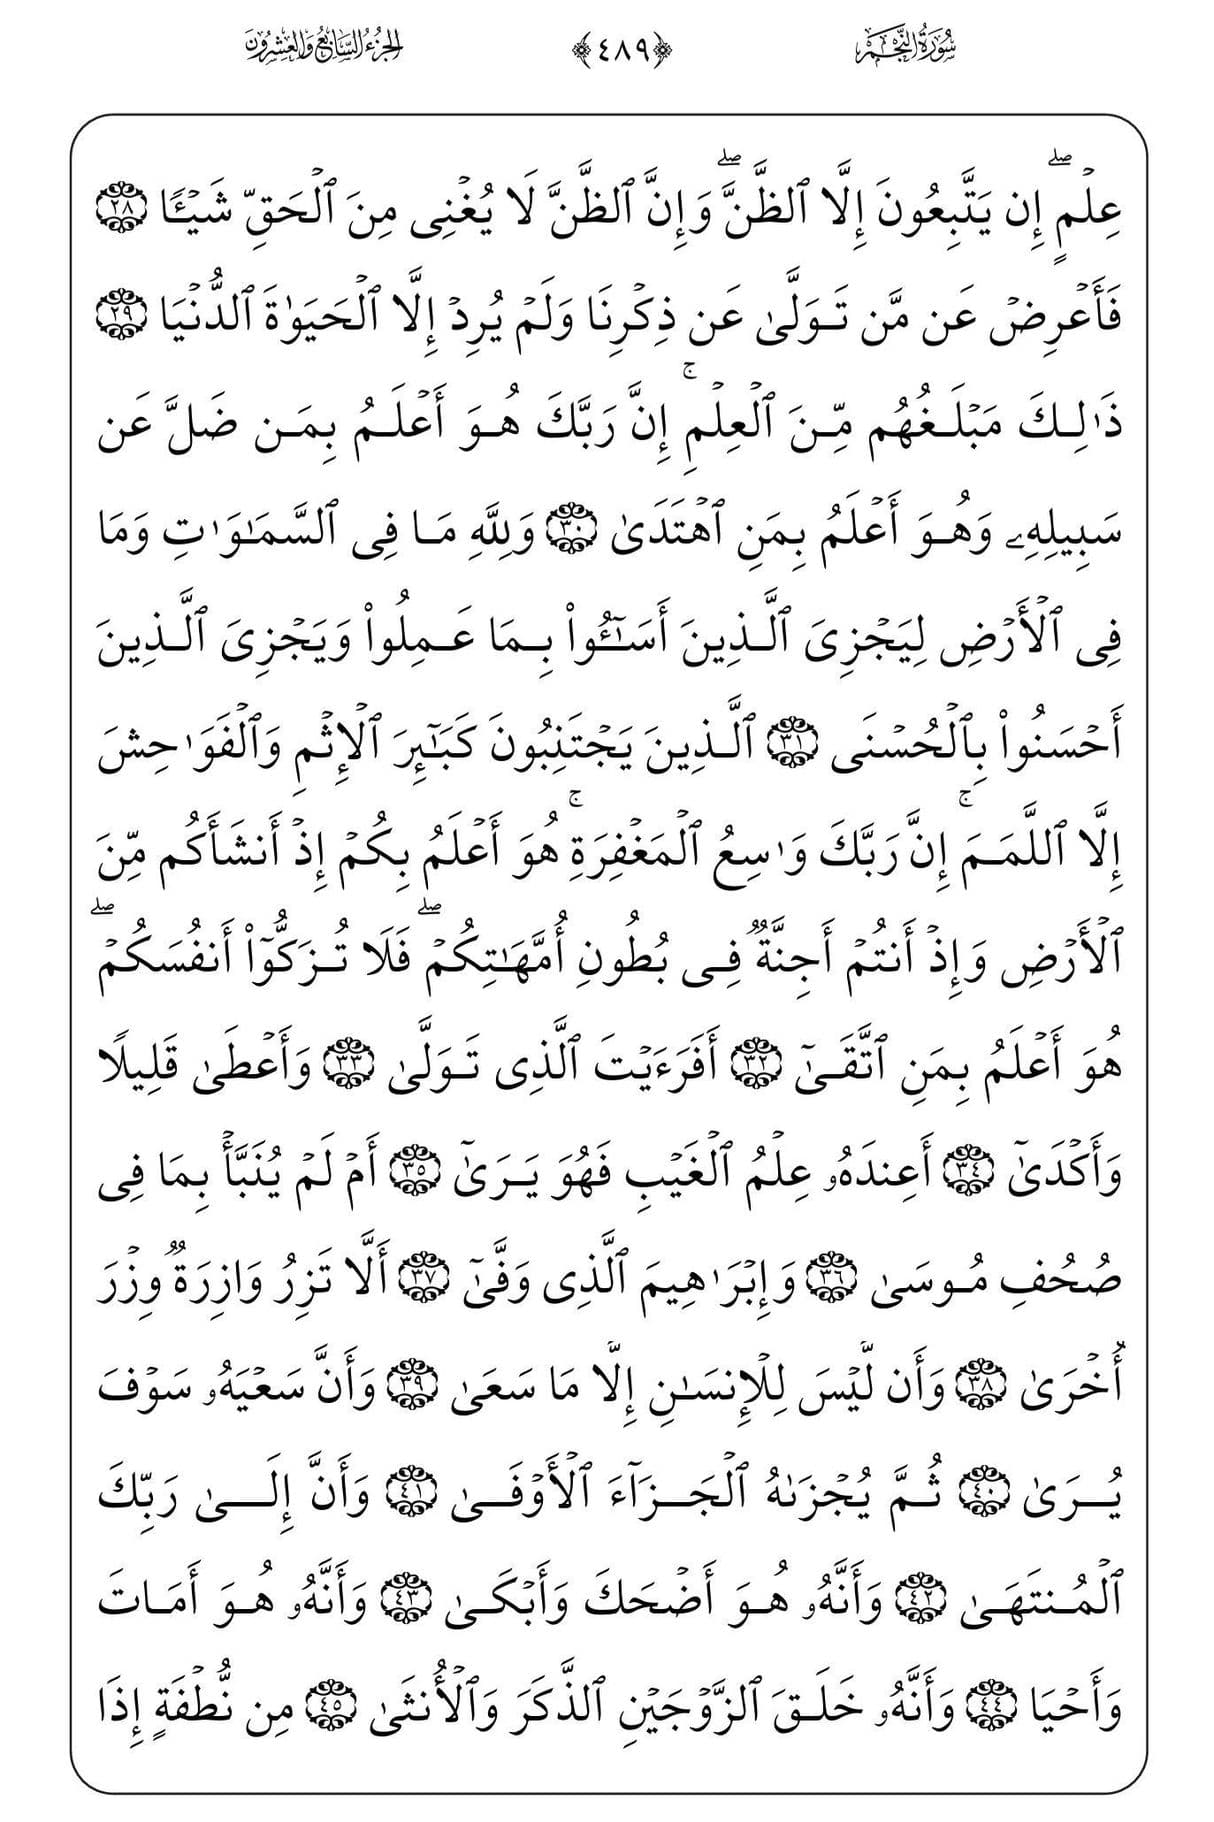 سُورَةُ النَّجْمِ ﴿٤٨٩﴾ الجُزْءُ السَّابِعُ وَالعِشْرُونَ
عِلْمٍۖ إِن يَتَّبِعُونَ إِلَّا ٱلظَّنَّۖ وَإِنَّ ٱلظَّنَّ لَا يُغْنِى مِنَ ٱلْحَقِّ شَيْـًٔا ٢٨
فَأَعْرِضْ عَن مَّن تَوَلَّىٰ عَن ذِكْرِنَا وَلَمْ يُرِدْ إِلَّا ٱلْحَيَوٰةَ ٱلدُّنْيَا ٢٩
ذَٰلِكَ مَبْلَغُهُم مِّنَ ٱلْعِلْمِۚ إِنَّ رَبَّكَ هُوَ أَعْلَمُ بِمَن ضَلَّ عَن
سَبِيلِهِۦ وَهُوَ أَعْلَمُ بِمَنِ ٱهْتَدَىٰ ٣٠ وَلِلَّهِ مَا فِى ٱلسَّمَـٰوَٰتِ وَمَا
فِى ٱلْأَرْضِ لِيَجْزِىَ ٱلَّذِينَ أَسَـٰٓـُٔوا۟ بِمَا عَمِلُوا۟ وَيَجْزِىَ ٱلَّذِينَ
أَحْسَنُوا۟ بِٱلْحُسْنَى ٣١ ٱلَّذِينَ يَجْتَنِبُونَ كَبَـٰٓئِرَ ٱلْإِثْمِ وَٱلْفَوَٰحِشَ
إِلَّا ٱللَّمَمَۚ إِنَّ رَبَّكَ وَٰسِعُ ٱلْمَغْفِرَةِۚ هُوَ أَعْلَمُ بِكُمْ إِذْ أَنشَأَكُم مِّنَ
ٱلْأَرْضِ وَإِذْ أَنتُمْ أَجِنَّةٌ فِى بُطُونِ أُمَّهَـٰتِكُمْۖ فَلَا تُزَكُّوٓا۟ أَنفُسَكُمْۖ
هُوَ أَعْلَمُ بِمَنِ ٱتَّقَىٰٓ ٣٢ أَفَرَءَيْتَ ٱلَّذِى تَوَلَّىٰ ٣٣ وَأَعْطَىٰ قَلِيلًا
وَأَكْدَىٰٓ ٣٤ أَعِندَهُۥ عِلْمُ ٱلْغَيْبِ فَهُوَ يَرَىٰٓ ٣٥ أَمْ لَمْ يُنَبَّأْ بِمَا فِى
صُحُفِ مُوسَىٰ ٣٦ وَإِبْرَٰهِيمَ ٱلَّذِى وَفَّىٰٓ ٣٧ أَلَّا تَزِرُ وَازِرَةٌ وِزْرَ
أُخْرَىٰ ٣٨ وَأَن لَّيْسَ لِلْإِنسَـٰنِ إِلَّا مَا سَعَىٰ ٣٩ وَأَنَّ سَعْيَهُۥ سَوْفَ
يُرَىٰ ٤٠ ثُمَّ يُجْزَىٰهُ ٱلْجَزَآءَ ٱلْأَوْفَىٰ ٤١ وَأَنَّ إِلَىٰ رَبِّكَ
ٱلْمُنتَهَىٰ ٤٢ وَأَنَّهُۥ هُوَ أَضْحَكَ وَأَبْكَىٰ ٤٣ وَأَنَّهُۥ هُوَ أَمَاتَ
وَأَحْيَا ٤٤ وَأَنَّهُۥ خَلَقَ ٱلزَّوْجَيْنِ ٱلذَّكَرَ وَٱلْأُنثَىٰ ٤٥ مِن نُّطْفَةٍ إِذَا